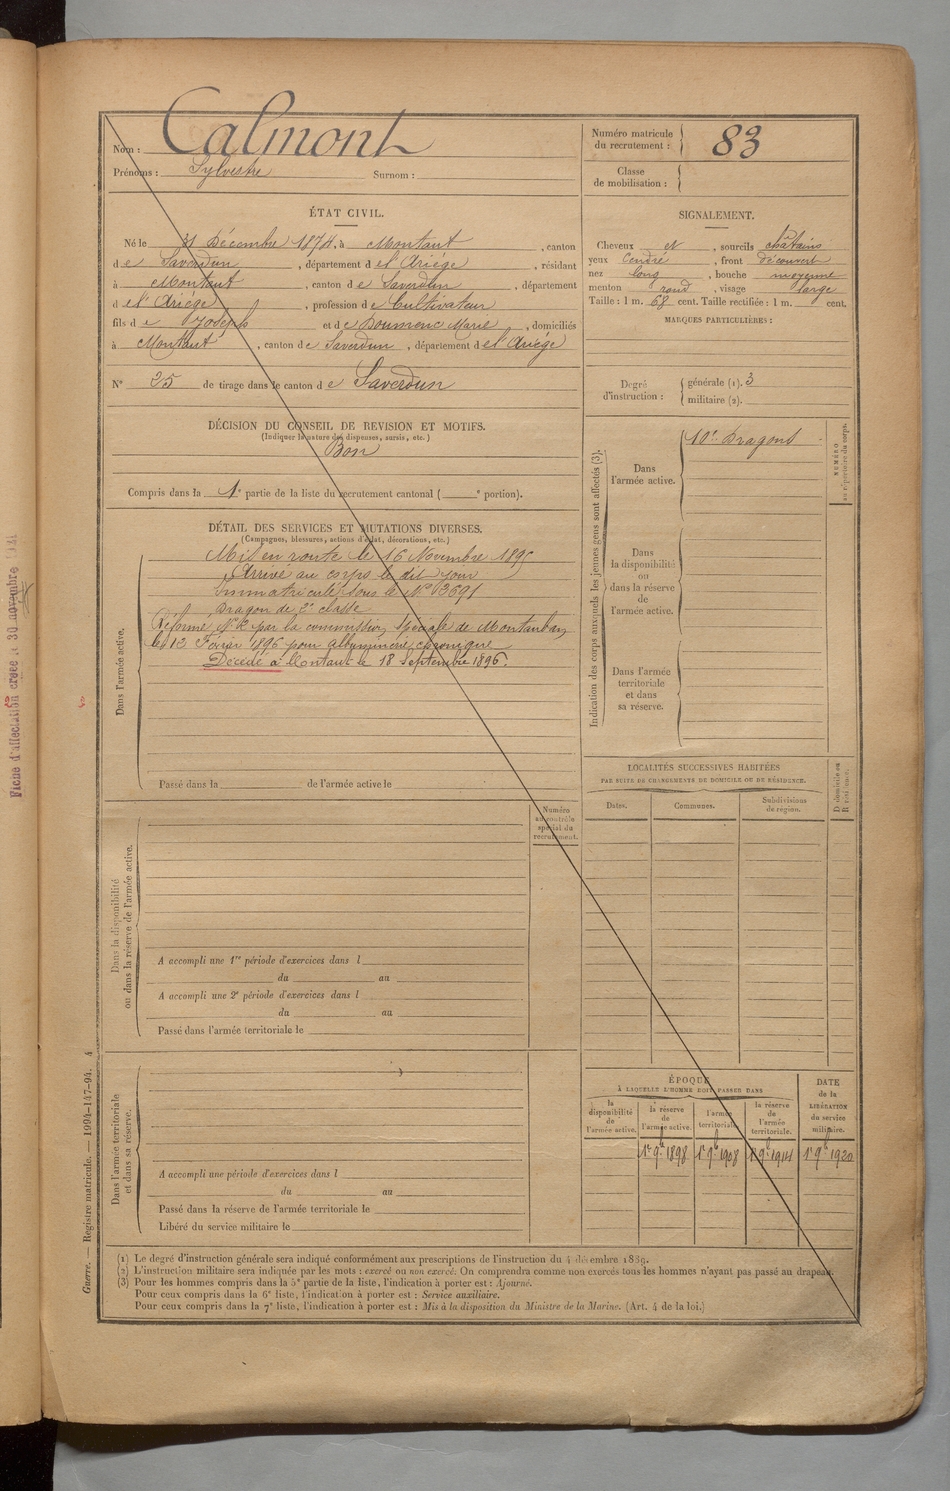 Fiche d'affectation créée le 30 novembre
Nom : Calmont
Prénoms : Sylvestre Surnom :
Numéro matricule du recrutement : 83
Classe de mobilisation :
ÉTAT CIVIL.
Né le 31 Décembre 1874, à Montaut, canton
de Saverdun, département de l'Ariége, résidant
à Montaut, canton de Saverdun, département
d el'Ariége, profession de Cultivateur
fils de Joseph et de Doumenc Marie, domiciliés
à Montaut, canton de Saverdun, département de l'Ariége
N° 25 de tirage dans le canton de Saverdun
SIGNALEMENT.
Cheveux et, sourcils châtains
yeux Cendré, front découvert
nez long, bouche moyenne
menton rond, visage large
Taille : 1 m. 68 cent. Taille rectifiée : 1 m. cent.
MARQUES PARTICULIÈRES :
Degré d'instruction :
générale (1). 3
militaire (2).
DÉCISION DU CONSEIL DE REVISION ET MOTIFS.
(Indiquer la nature des dispenses, sursis, etc.)
Bon
Compris dans la 1e partie de la liste du recrutement cantonal ( e portion).
DÉTAIL DES SERVICES ET MUTATIONS DIVERSES.
(Campagnes, blessures, actions d'éclat, décorations, etc.)
Dans l'armée active.
Mis en route le 16 Novembre 1895
Arrivé au corps le dit jour
Immatriculé sous le N° 3691
Dragon de 2e classe
Réformé N° 2 par la commission spéciale de Montauban
le 12 Février 1896 pour albuminérie chronique
Décédé à Montaut le 18 Septembre 1896.
Passé dans la de l'armée active le
Indication des corps auxquels les jeunes gens sont affectés (3).
NUMÉRO au répertoire du corps.
Dans l'armée active.
10e Dragons
Dans la disponibilité ou dans la réserve de l'armée active.
Dans l'armée territoriale et dans sa réserve.
LOCALITÉS SUCCESSIVES HABITÉES
PAR SUITE DE CHANGEMENTS DE DOMICILE OU DE RÉSIDENCE.
Dates. Communes. Subdivisions de région. D domicile ou R résidence.
Numéro au contrôle spécial du recrutement.
Dans la disponibilité ou dans la réserve de l'armée active.
A accompli une 1re période d'exercices dans l
du au
A accompli une 2e période d'exercices dans l
du au
Passé dans l'armée territoriale le
Dans l'armée territoriale et dans sa réserve.
A accompli une période d'exercices dans l
du au
Passé dans la réserve de l'armée territoriale le
Libéré du service militaire le
ÉPOQUE
À LAQUELLE L'HOMME DOIT PASSER DANS
la disponibilité de l'armée active.
la réserve de l'armée active.
l'armée territoriale.
la réserve de l'armée territoriale.
DATE de la LIBÉRATION du service militaire.
1er 9bre 1898 1er 9b 1908 1er 9b 1914 1er 9b 1920
Guerre. — Registre matricule. — 1994-147-94. 4
(1) Le degré d'instruction générale sera indiqué conformément aux prescriptions de l'instruction du 4 décembre 1889.
(2) L'instruction militaire sera indiquée par les mots : exercé ou non exercé. On comprendra comme non exercés tous les hommes n'ayant pas passé au drapeau.
(3) Pour les hommes compris dans la 5e partie de la liste, l'indication à porter est : Ajourné.
Pour ceux compris dans la 6e liste, l'indication à porter est : Service auxiliaire.
Pour ceux compris dans la 7e liste, l'indication à porter est : Mis à la disposition du Ministre de la Marine. (Art. 4 de la loi.)